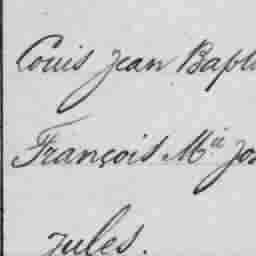 Louis Jean Bapt
François Mie Jos
Jules.